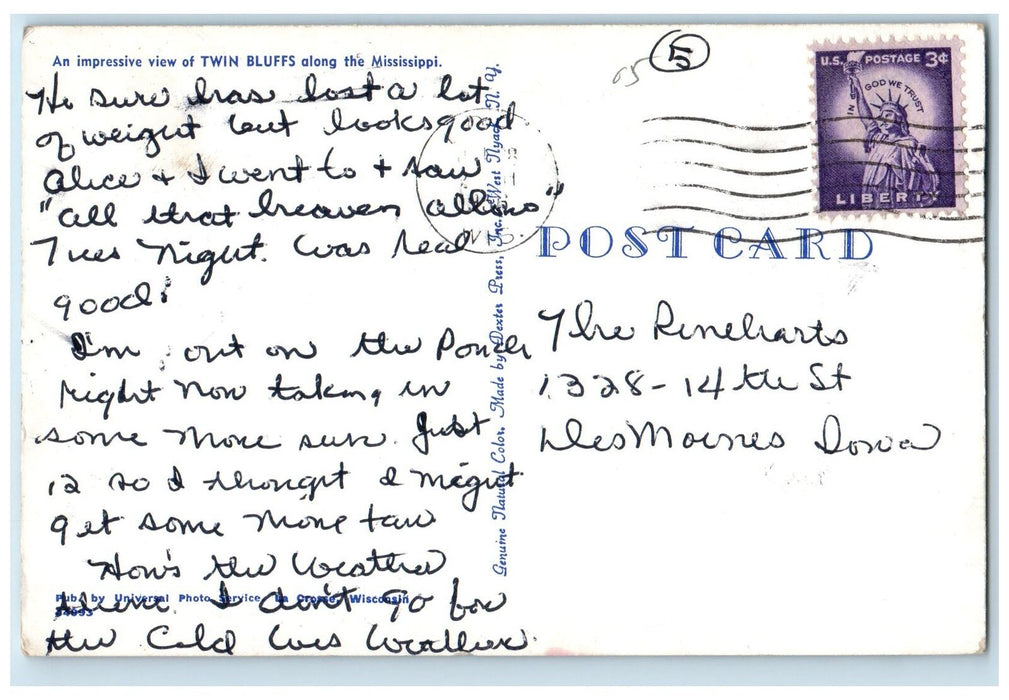 An impressive view of TWIN BLUFFS along the Mississippi.
05 5
He sure has lost a lot
of weight but looks good
Alice & I went to & saw
"all that heaven allows"
Tues Night. Was real
good.
I'm out on the Porch
right now taking in
some more sun. Just
12 so I thought I might
get some more tan
How's the Weather
there I don't go for
the Cold Wis Weather.
Pub. by Universal Photo Service, La Crosse, Wisconsin
Genuine Natural Color. Made by Dexter Press, Inc., West Nyack, N. Y.
WIS.
U.S. POSTAGE 3¢
IN GOD WE TRUST
LIBERTY
POST CARD
The Rineharts
1328-14th St
Des Moines Iowa